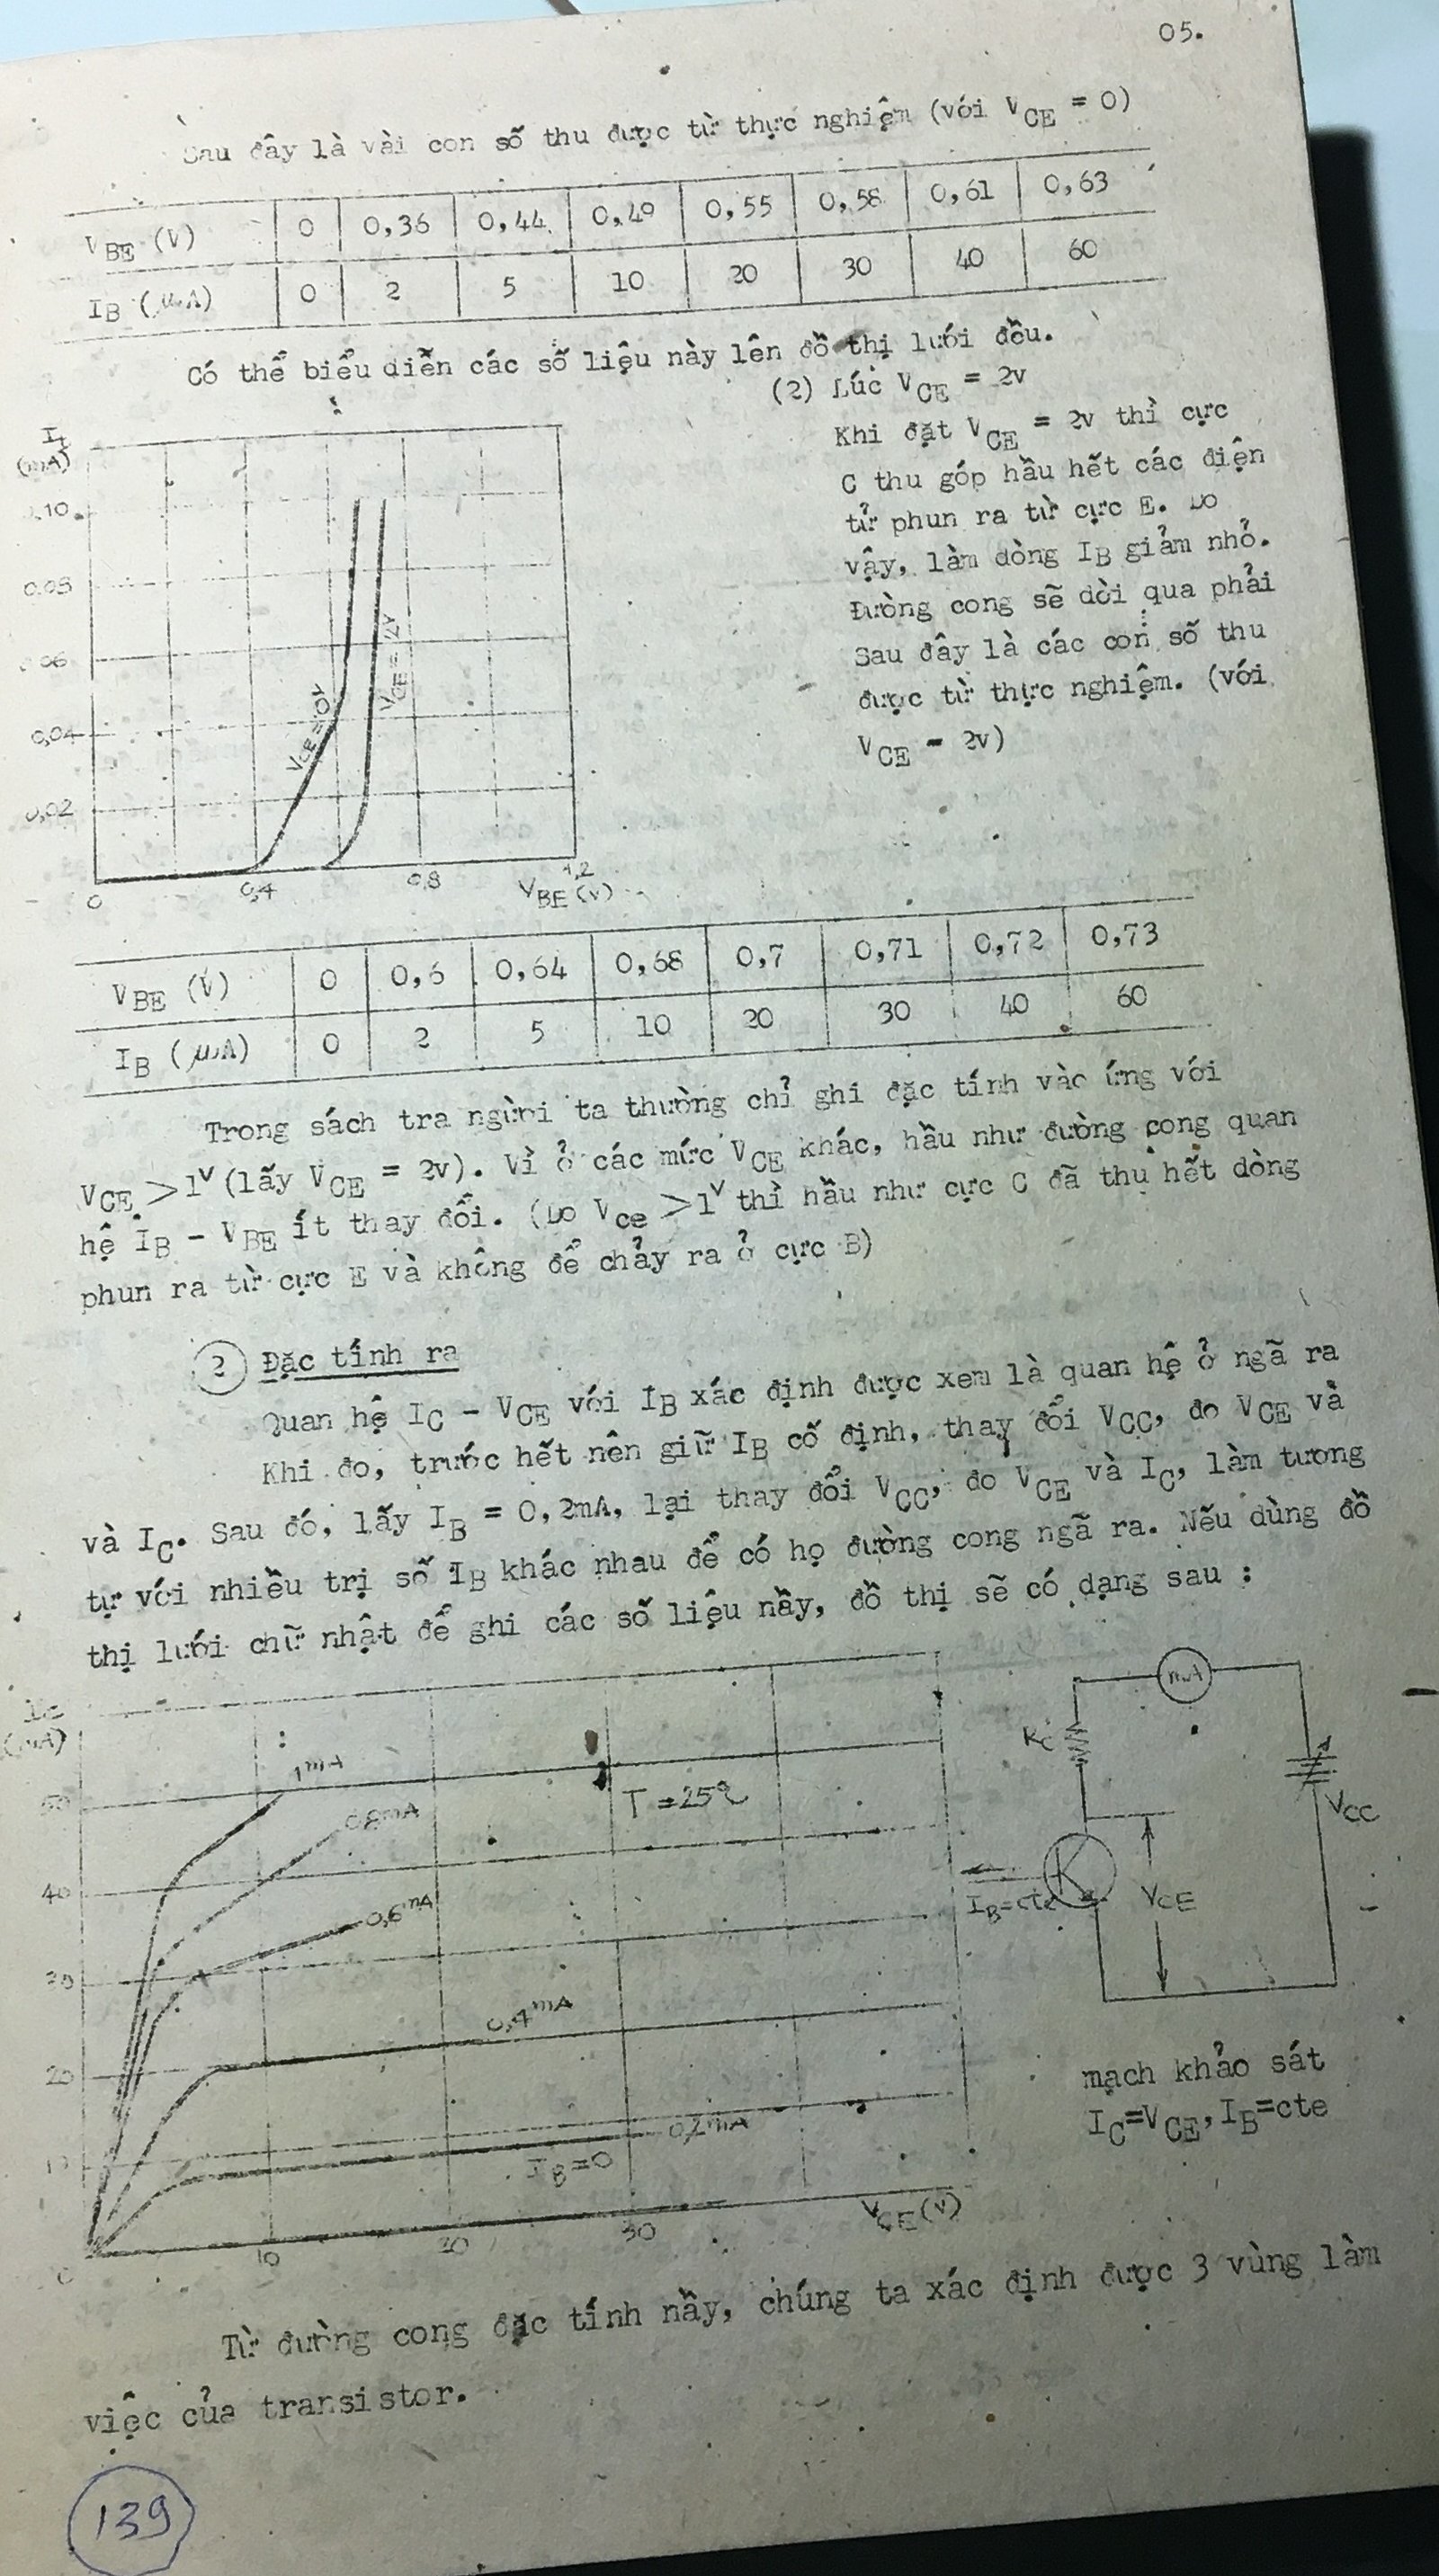 05.
Sau đây là vài con số thu được từ thực nghiệm (với VCE = 0)
VBE (V) 0 0,36 0,44 0,49 0,55 0,58 0,61 0,63
IB (µA) 0 2 5 10 20 30 40 60
Có thể biểu diễn các số liệu này lên đồ thị lưới đều.
(2) Lúc VCE = 2v
Khi đặt VCE = 2v thì cực
C thu góp hầu hết các điện
tử phun ra từ cực E. Do
vậy, làm dòng IB giảm nhỏ.
Đường cong sẽ dời qua phải
Sau đây là các con số thu
được từ thực nghiệm. (với
VCE - 2v)
(mA)
0,10
0,08
0,06
0,04
0,02
VCE = 0V
VCE = 2V
0 0,4 0,8 1,2
VBE (v)
VBE (V) 0 0,6 0,64 0,68 0,7 0,71 0,72 0,73
IB (µA) 0 2 5 10 20 30 40 60
Trong sách tra người ta thường chỉ ghi đặc tính vào ứng với
VCE >1v (lấy VCE = 2v). Vì ở các mức VCE khác, hầu như đường cong quan
hệ IB - VBE ít thay đổi. (Do Vce >1v thì hầu như cực C đã thu hết dòng
phun ra từ cực E và không để chảy ra ở cực B)
2 Đặc tính ra
Quan hệ IC - VCE với IB xác định được xem là quan hệ ở ngã ra
Khi đo, trước hết nên giữ IB cố định, thay đổi VCC, đo VCE và
và IC. Sau đó, lấy IB = 0,2mA, lại thay đổi VCC, đo VCE và IC, làm tương
tự với nhiều trị số IB khác nhau để có họ đường cong ngã ra. Nếu dùng đồ
thị lưới chữ nhật để ghi các số liệu nầy, đồ thị sẽ có dạng sau :
IC
(mA)
50
40
30
20
10
0
1mA
0,8mA
0,6mA
0,4mA
0,2mA
IB=0
T = 25°C
10 20 30
VCE(v)
mA
RC
VCC
IB=cte
VCE
mạch khảo sát
IC=VCE,IB=cte
Từ đường cong đặc tính nầy, chúng ta xác định được 3 vùng làm
việc của transistor.
139